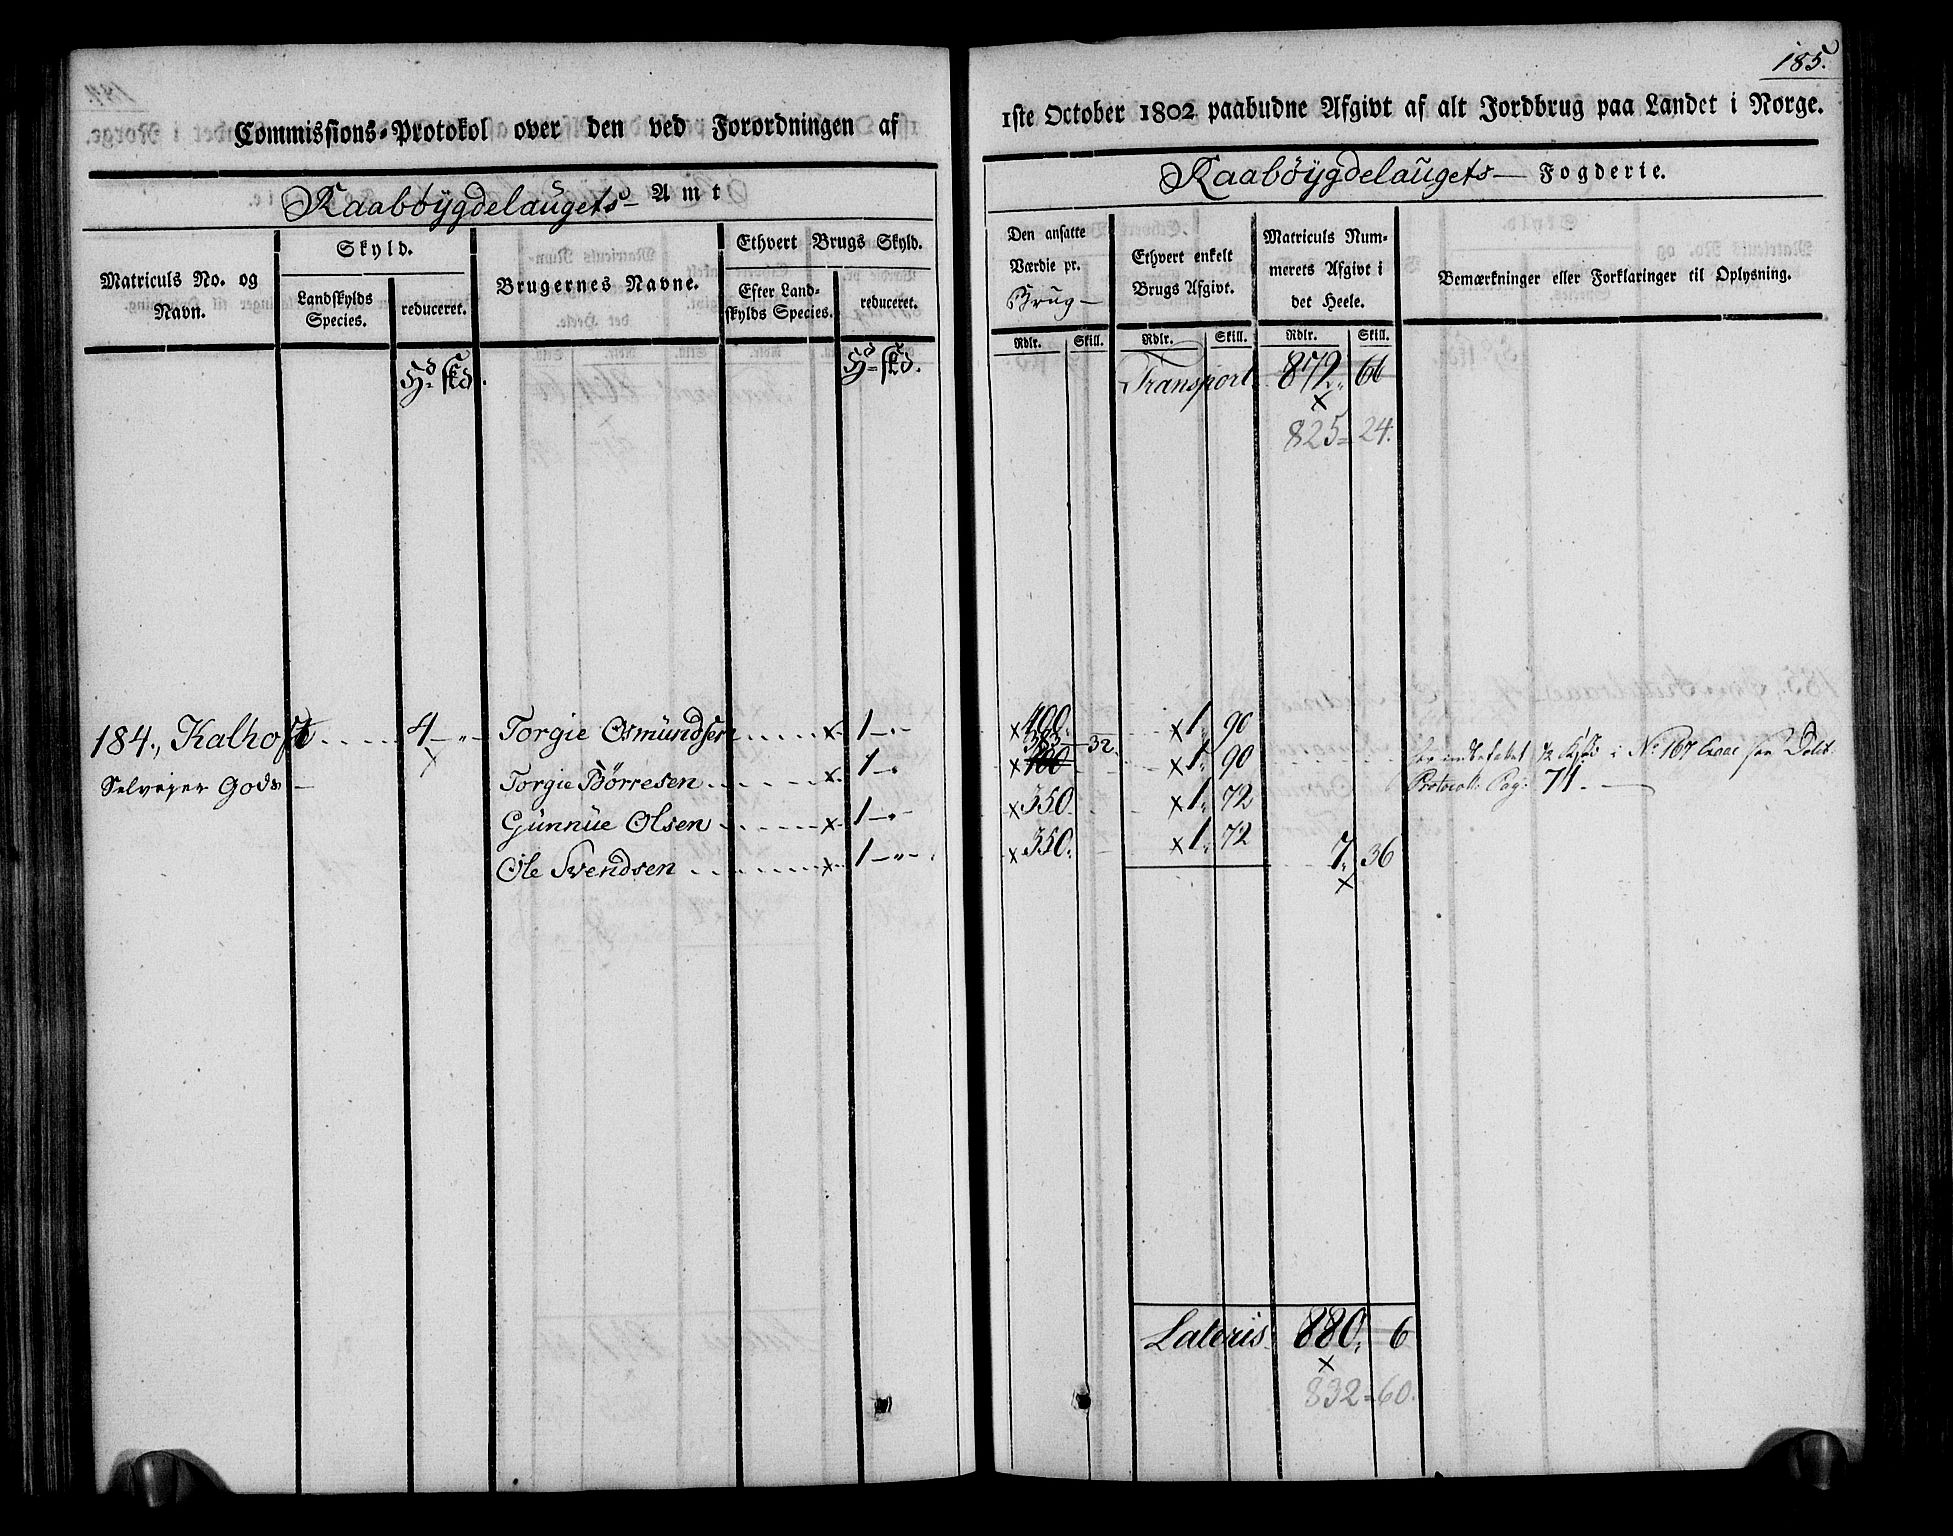 185.
Commissions-Protokol over den ved Forordningen af 1ste October 1802 paabudne Afgivt af alt Jordbrug paa Landet i Norge.
Raabøÿgdelaugets Amt
Raabøÿgdelaugets Fogderie.
Matriculs No. og Navn.
Skyld.
Landskylds Species.
reduceret.
Brugernes Navne.
Ethvert Brugs Skyld.
Efter Landskylds Species.
reduceret.
Den ansatte Værdie pr. Brug
Ethvert enkelt Brugs Afgivt.
Matriculs Nummerets Afgivt i det Heele.
Bemærkninger eller Forklaringer til Oplysning.
Rdlr. Skill. Rdlr. Skill. Rdlr. Skill.
Hd skd. Hd skd. Transport 872 66
825 = 24.
184., Kalhoft 4 Torgie Osmündsen 1 400. 1 90
Selveier Gods Torgie Börresen 1 400 383 32 1 90 i No 167
Protocoll Pag: 71.
Günnüe Olsen 1 350. 1 72
Ole Svendsen 1 350. 1 72 7 36
Lateris 880 6
832 = 60.